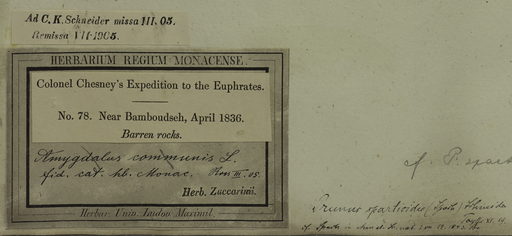 Ad C. K. Schneider missa III. 05.
Remissa VII. 1905.
HERBARIUM REGIUM MONACENSE.
Colonel Chesney's Expedition to the Euphrates.
No. 78. Near Bamboudseh, April 1836.
Barren rocks.
Amygdalus communis L.
fid. cat. hb. Monac. III. 05.
Herb. Zuccarini.
Herbar. Univ. Ludov. Maximil.
cf. P. spart
Prunus spartioides (Spach) Schneider